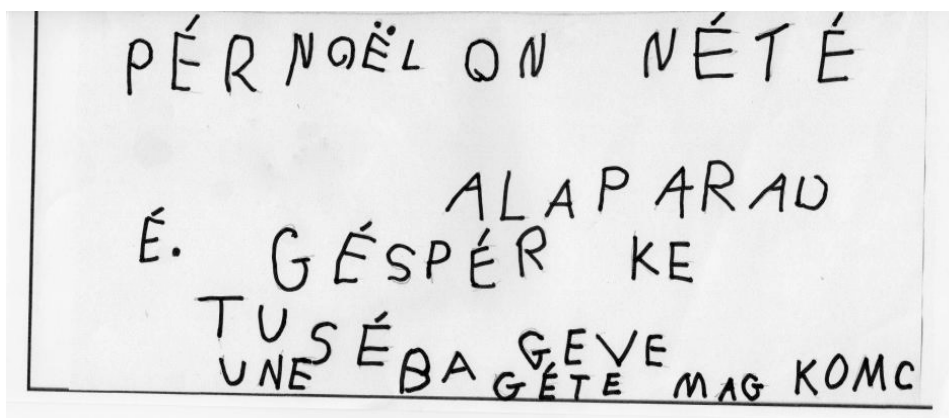 PÉR NOËL ON NÉTÉ
ALAPARAD
É. GÉSPÉR KE
TU SÉ BA GEVE
UNE GÉTE MAG KOMC